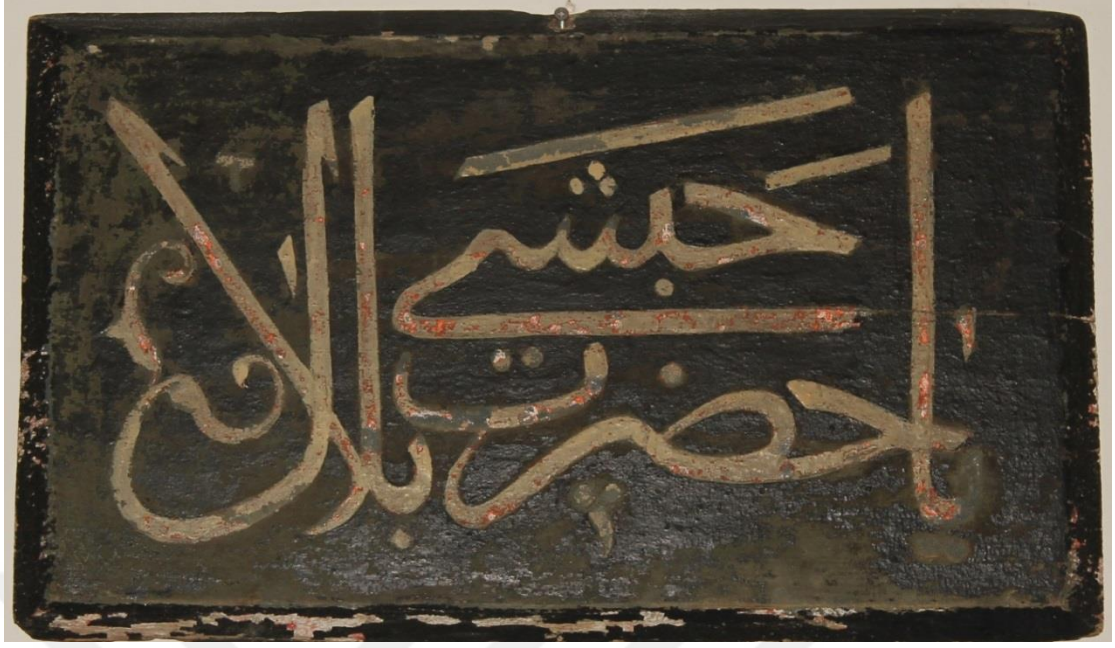 يا حضرت بلال حبشي